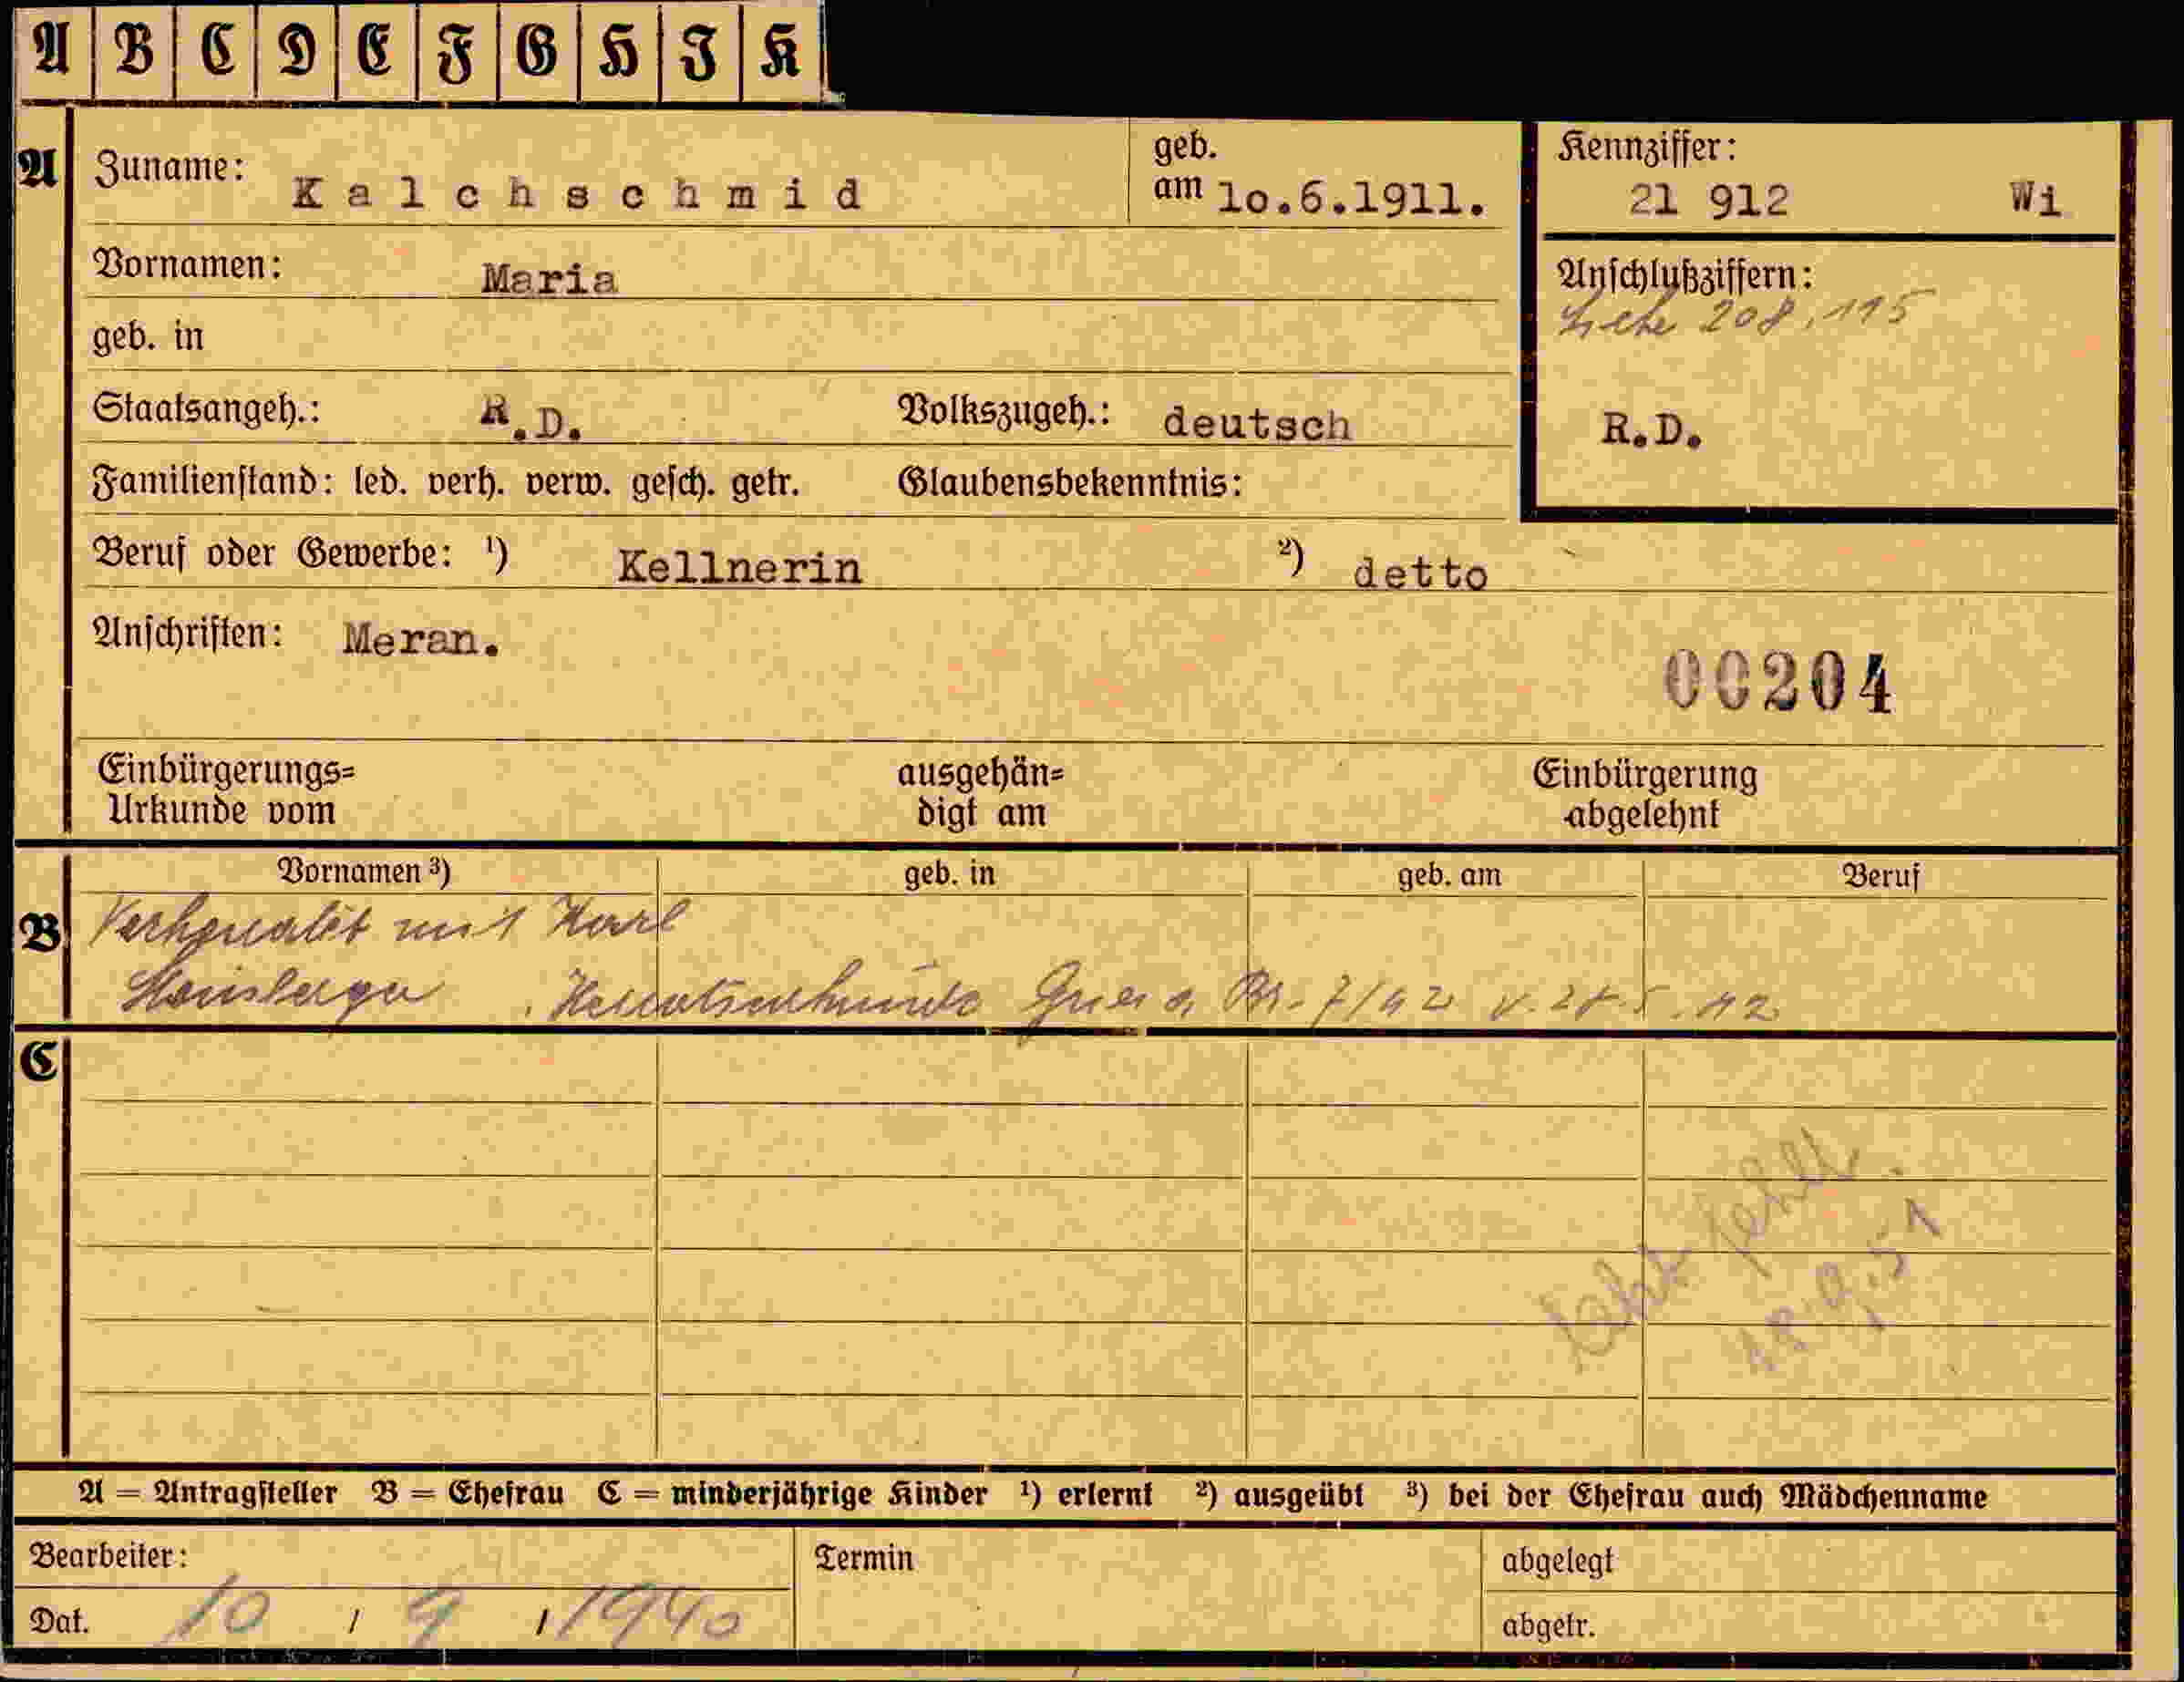 A B C D E F G H I K
A Zuname: Kalchschmid geb. am 10.6.1911. Kennziffer: 21 912 Wi
Vornamen: Maria Anschlußziffern:
siehe 208,115
geb. in
Staatsangeh.: R.D. Volkszugeh.: deutsch R.D.
Familienstand: led. verh. verw. gesch. getr. Glaubensbekenntnis:
Beruf oder Gewerbe: ¹) Kellnerin ²) detto
Anschriften: Meran.
00204
Einbürgerungs= ausgehän= Einbürgerung
Urkunde vom digt am abgelehnt
Vornamen ³) geb. in geb. am Beruf
B Verheiratet mit Karl
Heiratsurkunde Gries a. Br. 7/42 v. 28.5.42
C
fehlt
18.9.51
A = Antragsteller B = Ehefrau C = minderjährige Kinder ¹) erlernt ²) ausgeübt ³) bei der Ehefrau auch Mädchenname
Bearbeiter: Termin abgelegt
Dat. 10 / 9 / 1940 abgetr.